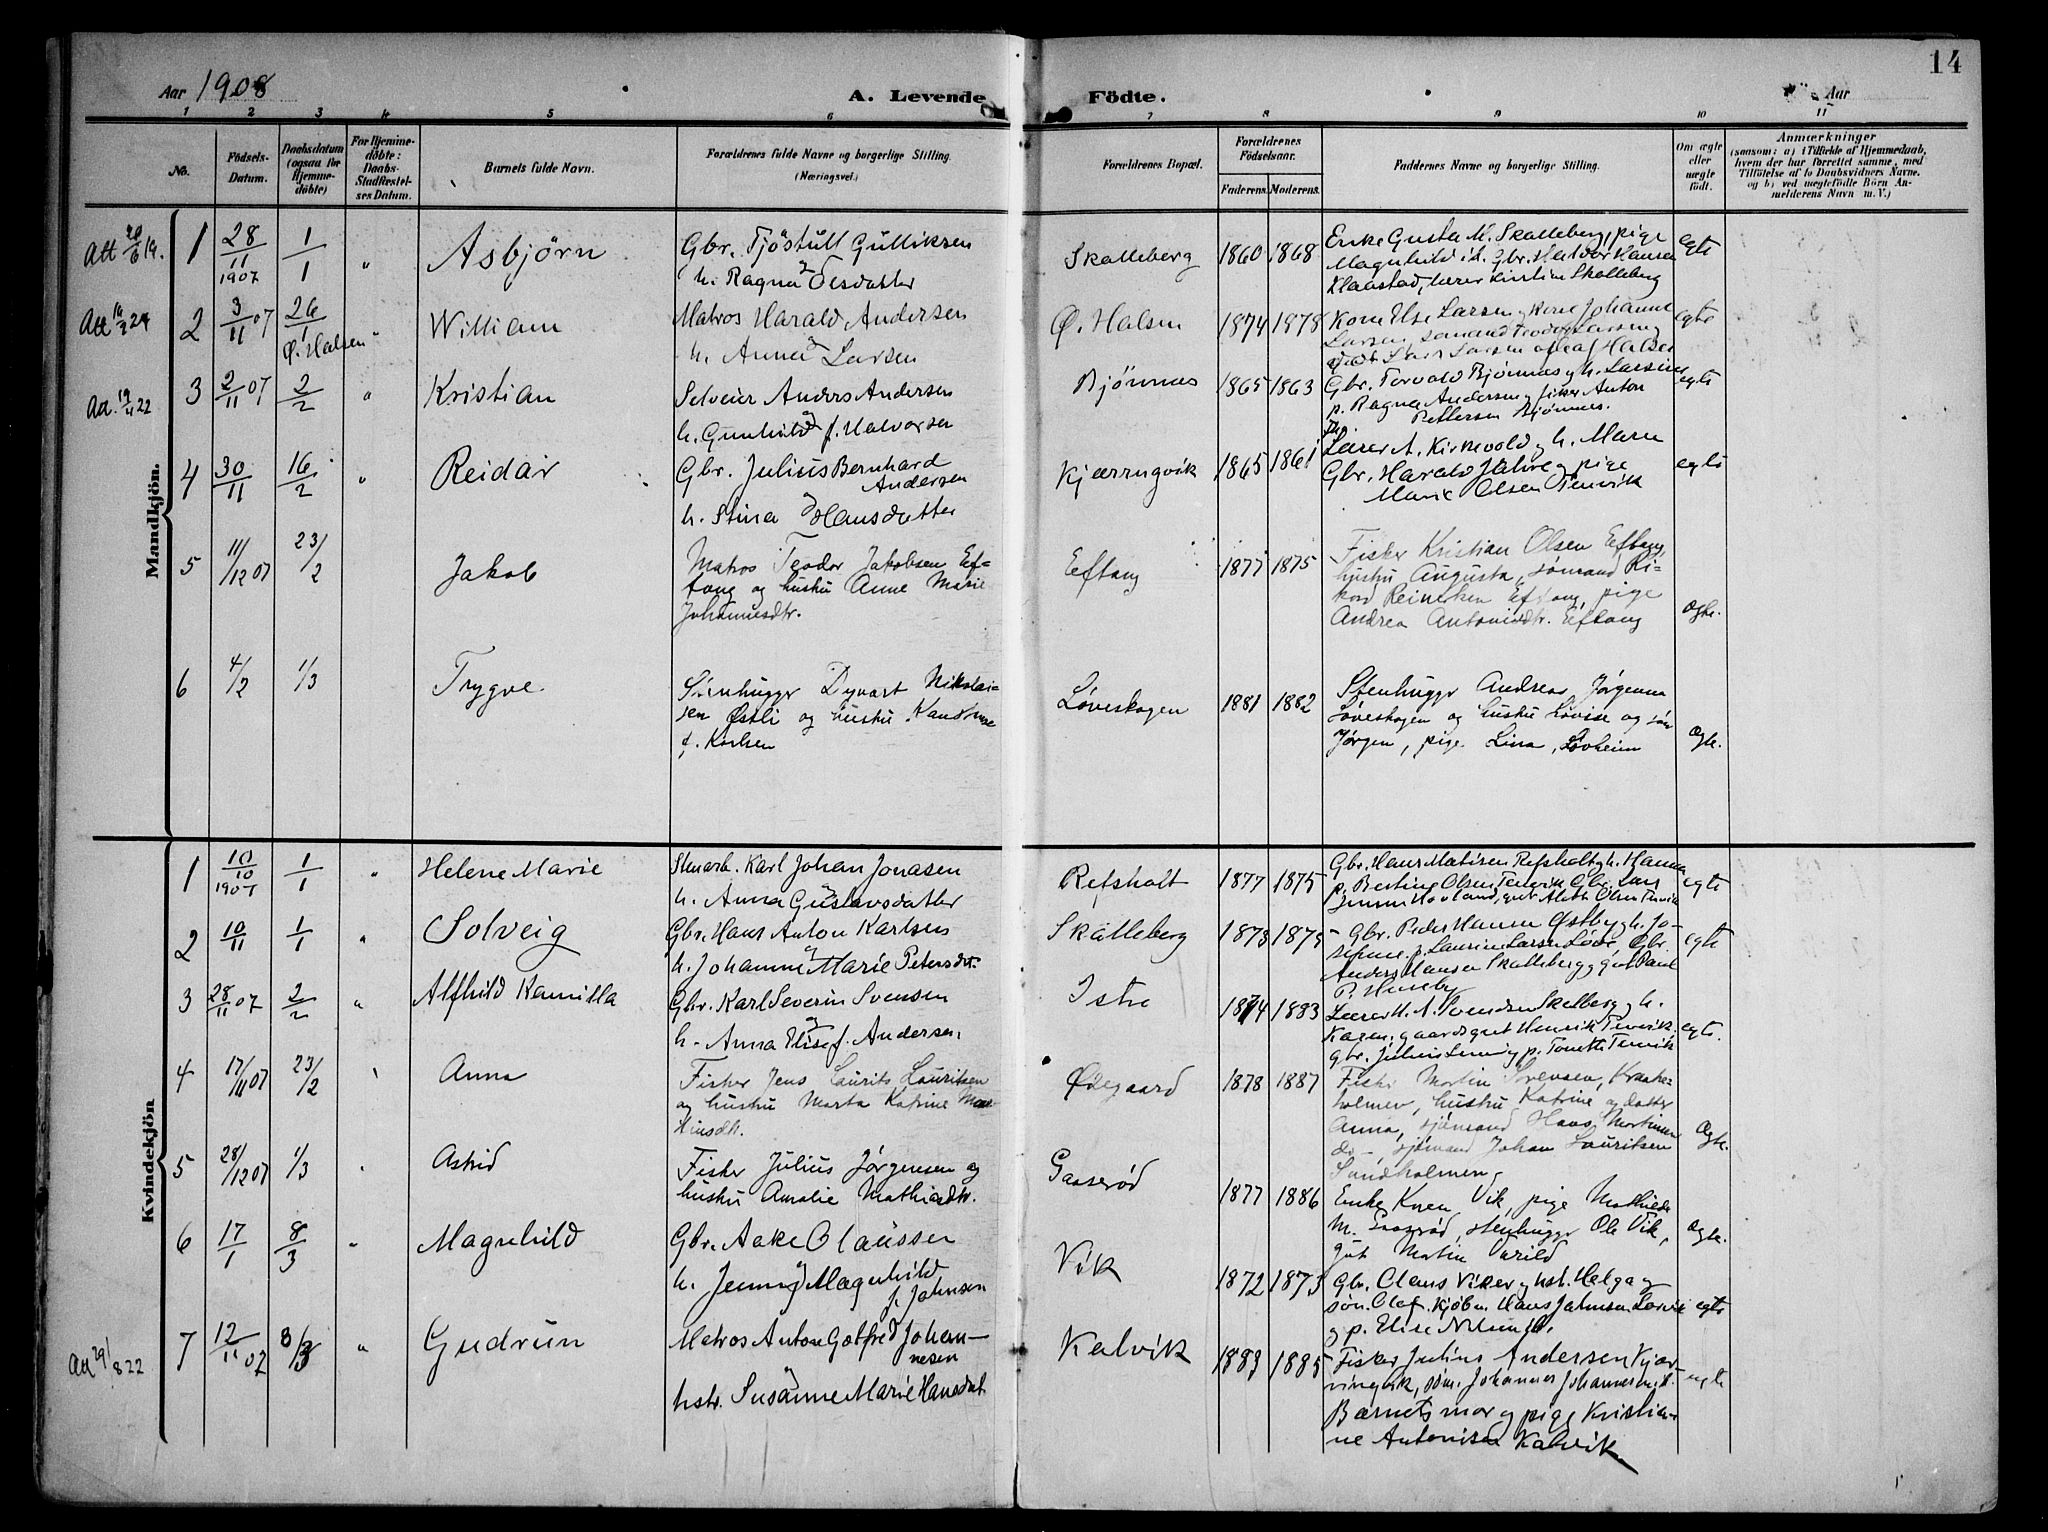 14
Aar 1908
A. Levende Födte.
Aar
1 2 3 4 5 6 7 8 9 10 11
No.
Födsels-Datum.
Daabsdatum (ogsaa for Hjemmedöbte)
For Hjemmedöbte: Daabs-Stadfæstelses Datum.
Barnets fulde Navn.
Forældrenes fulde Navne og borgerlige Stilling.
(Næringsvei.)
Forældrenes Bopæl.
Forældrenes Födselsaar.
Faderens. Moderens.
Faddernes Navne og borgerlige Stilling.
Om ægte eller uægte födt.
Anmærkninger
(saasom: a) i Tilfælde af Hjemmedaab,
hvem der har forrettet samme, med
Tilföielse af to Daabsvidners Navne.
og b) ved uægtefödte Börn An-
melderens Navn m. V.)
Mandkjön.
Att 20/6 19. 1 28/11 1907 1/1 " Asbjörn
Gbr. Tjöstull Gulliksen
h. Ragna Olesdatter
Skalleberg 1860 1868
Enke Gusta M. Skalleberg, pige
Magnhild Gbr. Halvor Hansen
Klaastad, lærer Kristian Skalleberg
egte
Att 24 2 3/11 07 26/1 Ø. Halsen " William
Matros Harald Andersen
h. Anna Larsen
Ø. Halsen 1874 1978
Kone Else Larsen, kone Johanne
Larsen, sömand Teodor Larsen
Lars Larsen Halsen
egte
Att. 19/11 22 3 2/11 07 2/2 " Kristian
Selveier Anders Andersen
og h. Gunhild f. Halvorsen
Bjönnes 1865 1863
Gbr. Torvald Bjönnes h. Larsine
p. Ragna Andersen, fisker Anton
Pettersen Bjönnes.
egte
4 30/11 16/2 " Reidar
Gbr. Julius Bernhard
Andersen
h. Stina Hansdatter
Kjærrngvik 1865 1861
Lærer A. Kirkevold h. Maren
Gbr. Harald Jahre, pige
Marie Olsen Tenvik
egte
5 11/12 07 23/2 Jakob
Matros Teodor Jakobsen Ef-
tang og hustru Anne Marie
Johannesdtr.
Eftang 1877 1875
Fisker Kristian Olsen Eftang
hustru Augusta, sömand Ri-
kard Reinertsen Eftang, pige
Andrea Antonisdtr. Eftang
ægte.
6 4/2 1/3 Trygve.
Stenhugger Dyvart Nikolai-
sen Østli og hustru Kandime
f. Karlsen
Løveskogen 1881 1882
Stenhugger Andreas Jørgensen
Løveskogen og hustru Lovise og søn
Jørgen, pige Lina Lovheim
Ægte.
Kvindekjön
1 10/10 1907 1/1 " Helene Marie
Stenarb. Karl Johan Jonasen
h. Anna Gustavsdatter
Refsholt 1877 1875
Gbr. Hans Matisen Refsholt h. Hanna
p. Bertine Olsen Tenvik Gbr. Lars
Jensen Hovland, gut Aleth Olsen Tenvik
egte
2 10/11 1/1 " Solveig
Gbr. Hans Anton Karlsen
og h. Johanne Marie Petersdtr.
Skalleberg 1873 1875
Gbr. Peder Hansen Østby h. Jo-
sefine p. Laurine Larsen Løve, Gbr.
Anders Hansen Skalleberg, gut Paul
P. Huseby
egte
3 28/11 07 2/2 " Alfhild Kamilla
Gbr. Karl Severin Svensen
og h. Anna Elise f. Andersen.
Istre 1874 1883
Lærer H. A. Svendsen Skalleberg h.
Karen, gaardsgut Henrik Tenvik
gbr. Julius p. Tonette Tenvik
egte.
4 17/11 07 23/2 " Anna
Fisker Jens Laurits Lauritsen
og hustru Marta Katrine Mar-
tinsdtr.
Ødegaard 1878 1887
Fisker Martin Sørensen, Krake-
holmen, hustru Katrine og datter
Anna, sjömand Hans Martinsen
do-, sjömand Johan Lauritsen
Sandholmen.
Ægte.
5 28/12 07 1/3 Astrid
Fisker Julius Jørgensen og
hustru Amalie Mathiasdtr.
Gaaserød 1877 1886
Enke Karen Vik, pige Mathilde
M. Gaaserød, stenhugger Ole Vik,
gut Martin Varild
Ægte.
6 17/1 8/3 " Magnhild
Gbr. Aake Olaussen
og h. Jenny Magnhild
f. Johnsen
Vik 1872 1873
Gbr. Claus Viker hst. Helga
sön. Olaf. Kjöbm. Hans Johnsen Larvik
p. Elise
egte
Att 29/8 22 7 12/11 07 8/3 " Gudrun
Matros Anton Gotfred Johan-
nesen
hstr. Susanne Marie Hansdat.
Kalvik 1883 1885
Fisker Julius Andersen Kjær-
ringvik, söm. Johannes Johannesen
Barnets mor pige Kristian-
ne Antonisen Kalvik
egte